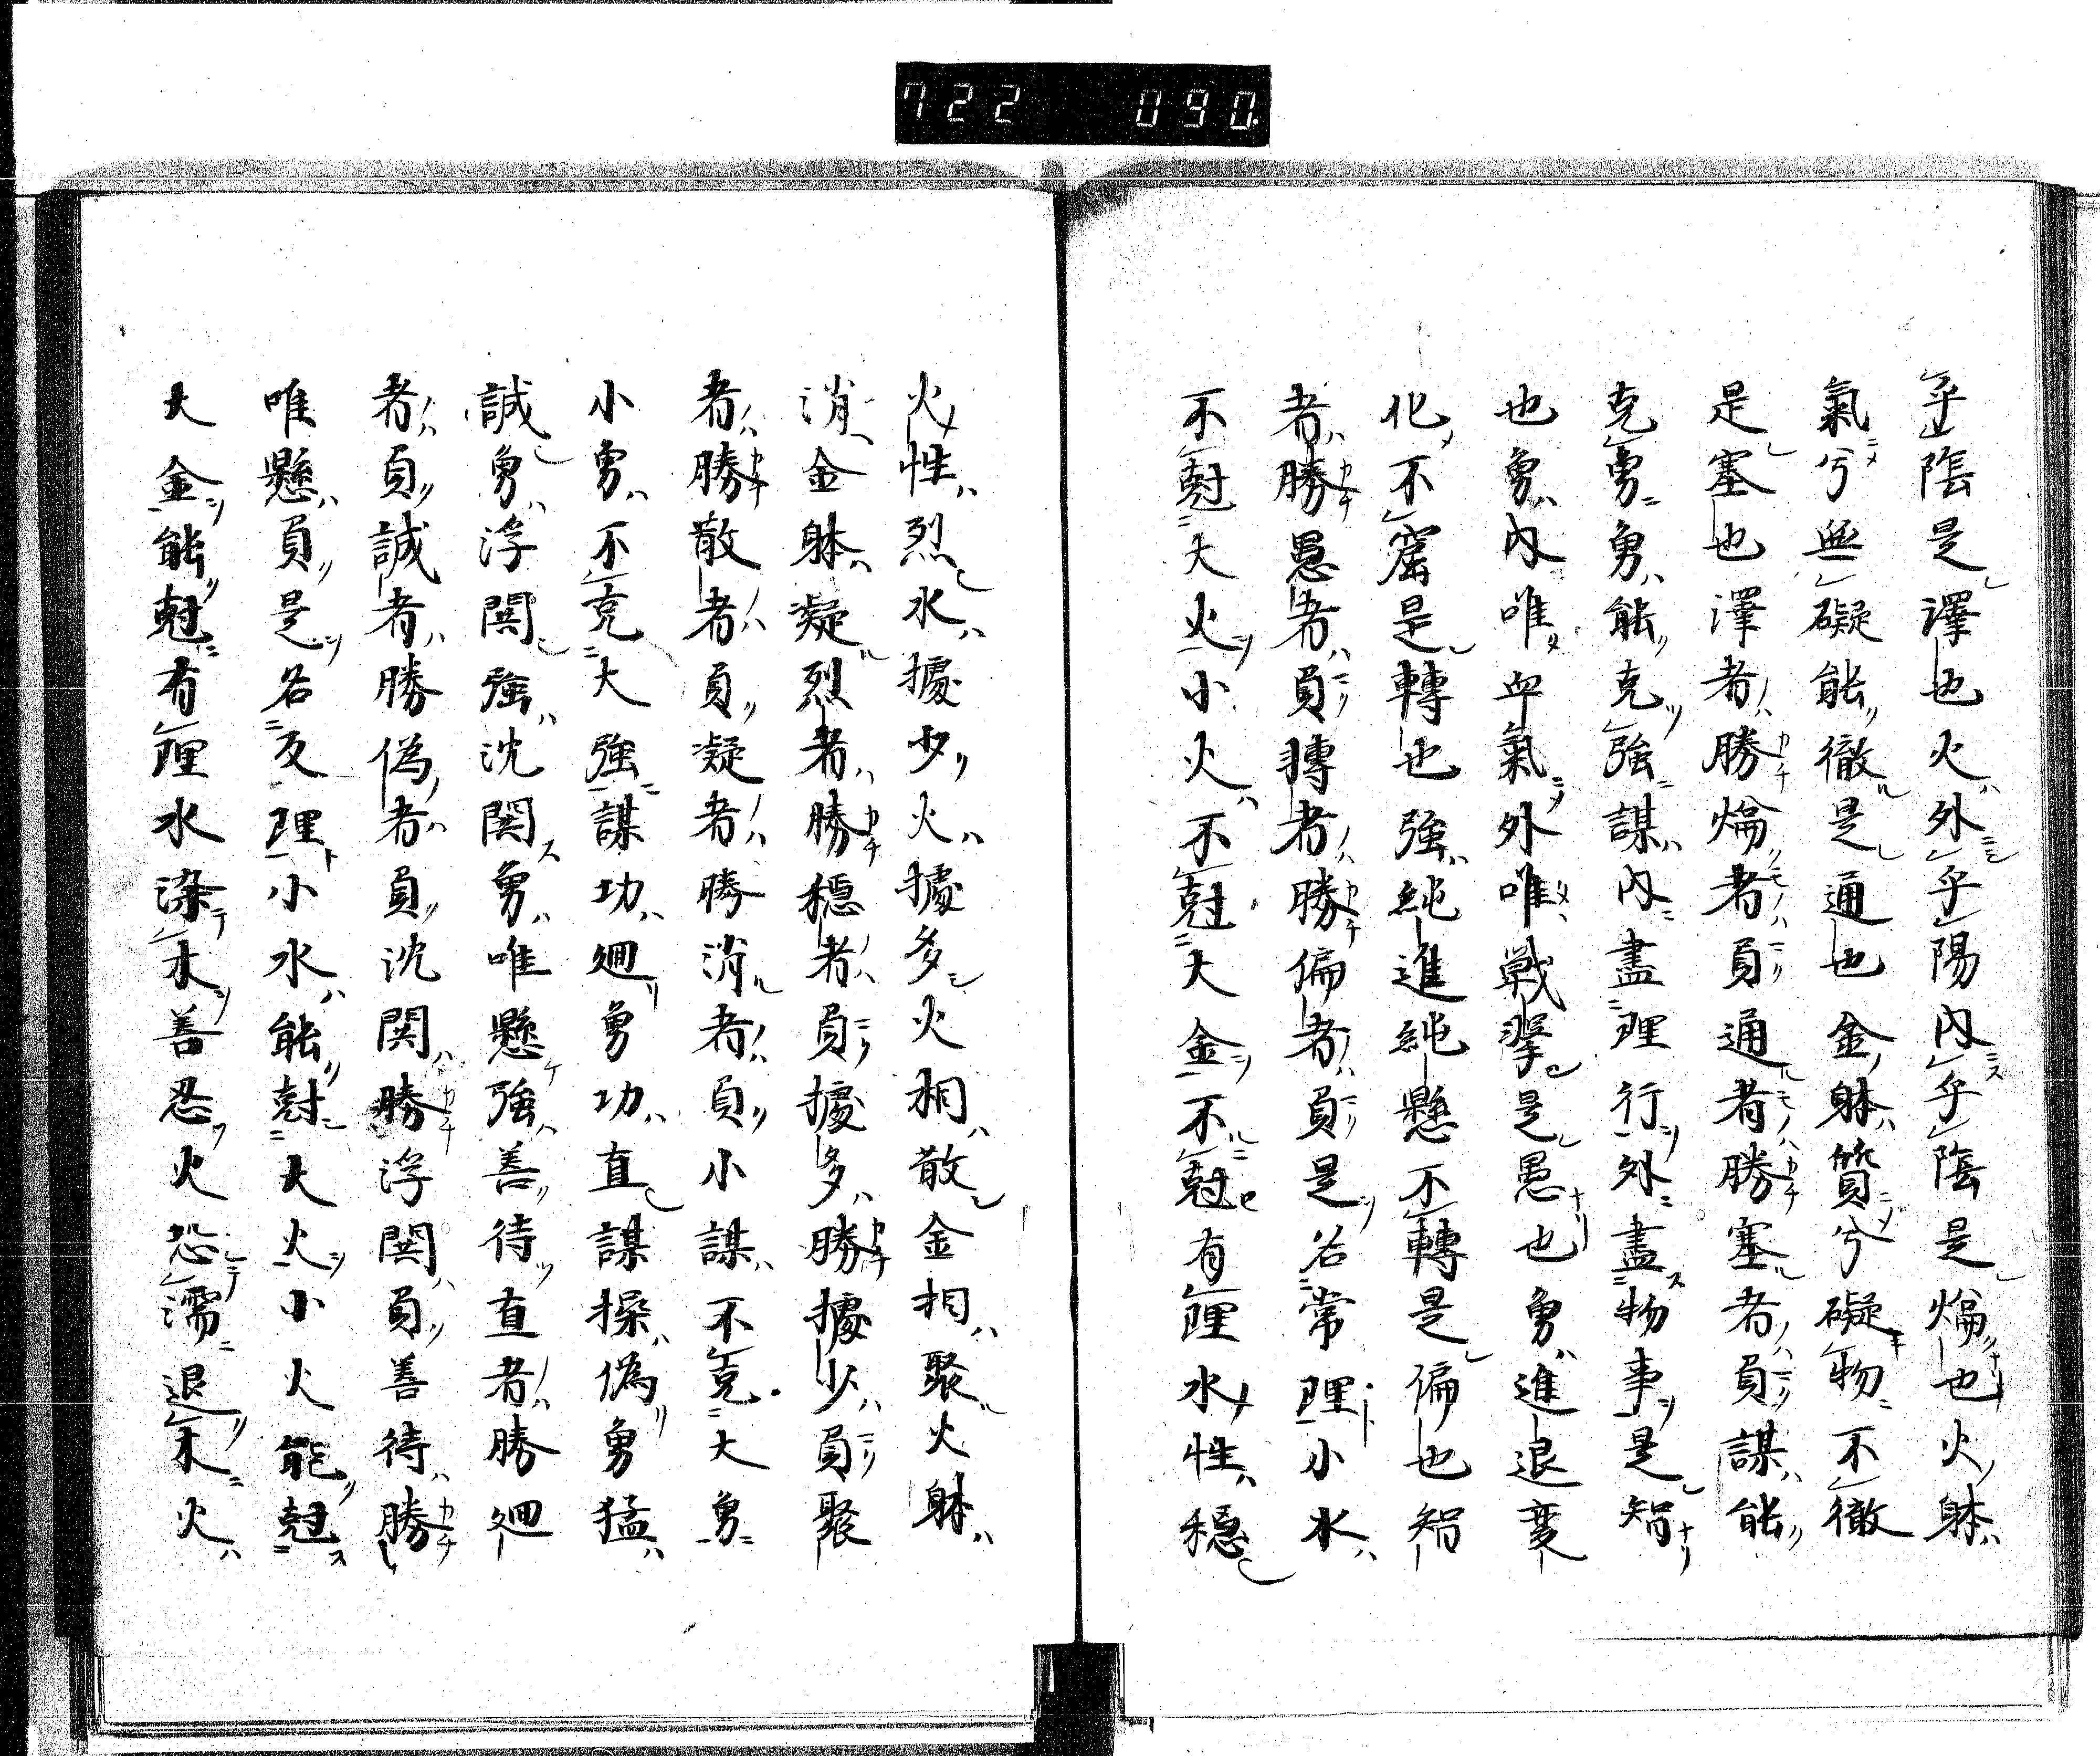 722 090
乎陰是澤也火外乎陽内乎陰是燔也火躰
氣兮無礙能徹是通也金躰質兮礙物不徹
是塞也澤者勝燔者負通者勝塞者負謀能
克勇勇能克強謀内盡理行外盡物事是智
也勇内唯血氣外唯戦撃是愚也勇進退変
化不窟是轉也強純進純懸不轉是偏也智
者勝愚者負轉者勝偏者負是名常理小水
不尅大火小火不尅大金不尅有理水性穏
火性烈水據少火據多火相散金相聚火躰
消金躰凝烈者勝穏者負據多勝據少負聚
者勝散者負凝者勝消者負小謀不克大勇
小勇不克大強謀功廻勇功直謀操偽勇猛
誠勇浮関強沈関勇唯懸強善待直者勝廻
者負誠者勝偽者負沈関勝浮関負善待勝
唯懸負是名反理小水能尅大火小火能尅
大金能尅有理水染木善忍火恐濡退木火